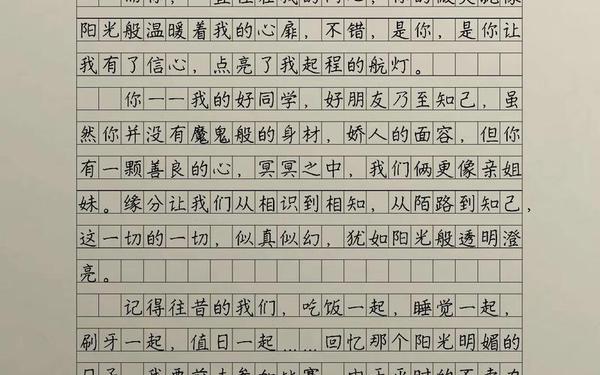 阳光般温暖着我的心扉，不错，是你，是你让
我有了信心，点亮了我起程的航灯。
你一一我的好同学，好朋友乃至知己，虽
然你并没有魔鬼般的身材，娇人的面容，但你
有一颗善良的心，冥冥之中，我们俩更像亲姐
妹。缘分让我们从相识到相知，从陌路到知己，
这一切的一切，似真似幻，犹如阳光般透明澄
亮。
记得往昔的我们，吃饭一起，睡觉一起，
刷牙一起，值日一起……回忆那个阳光明媚的